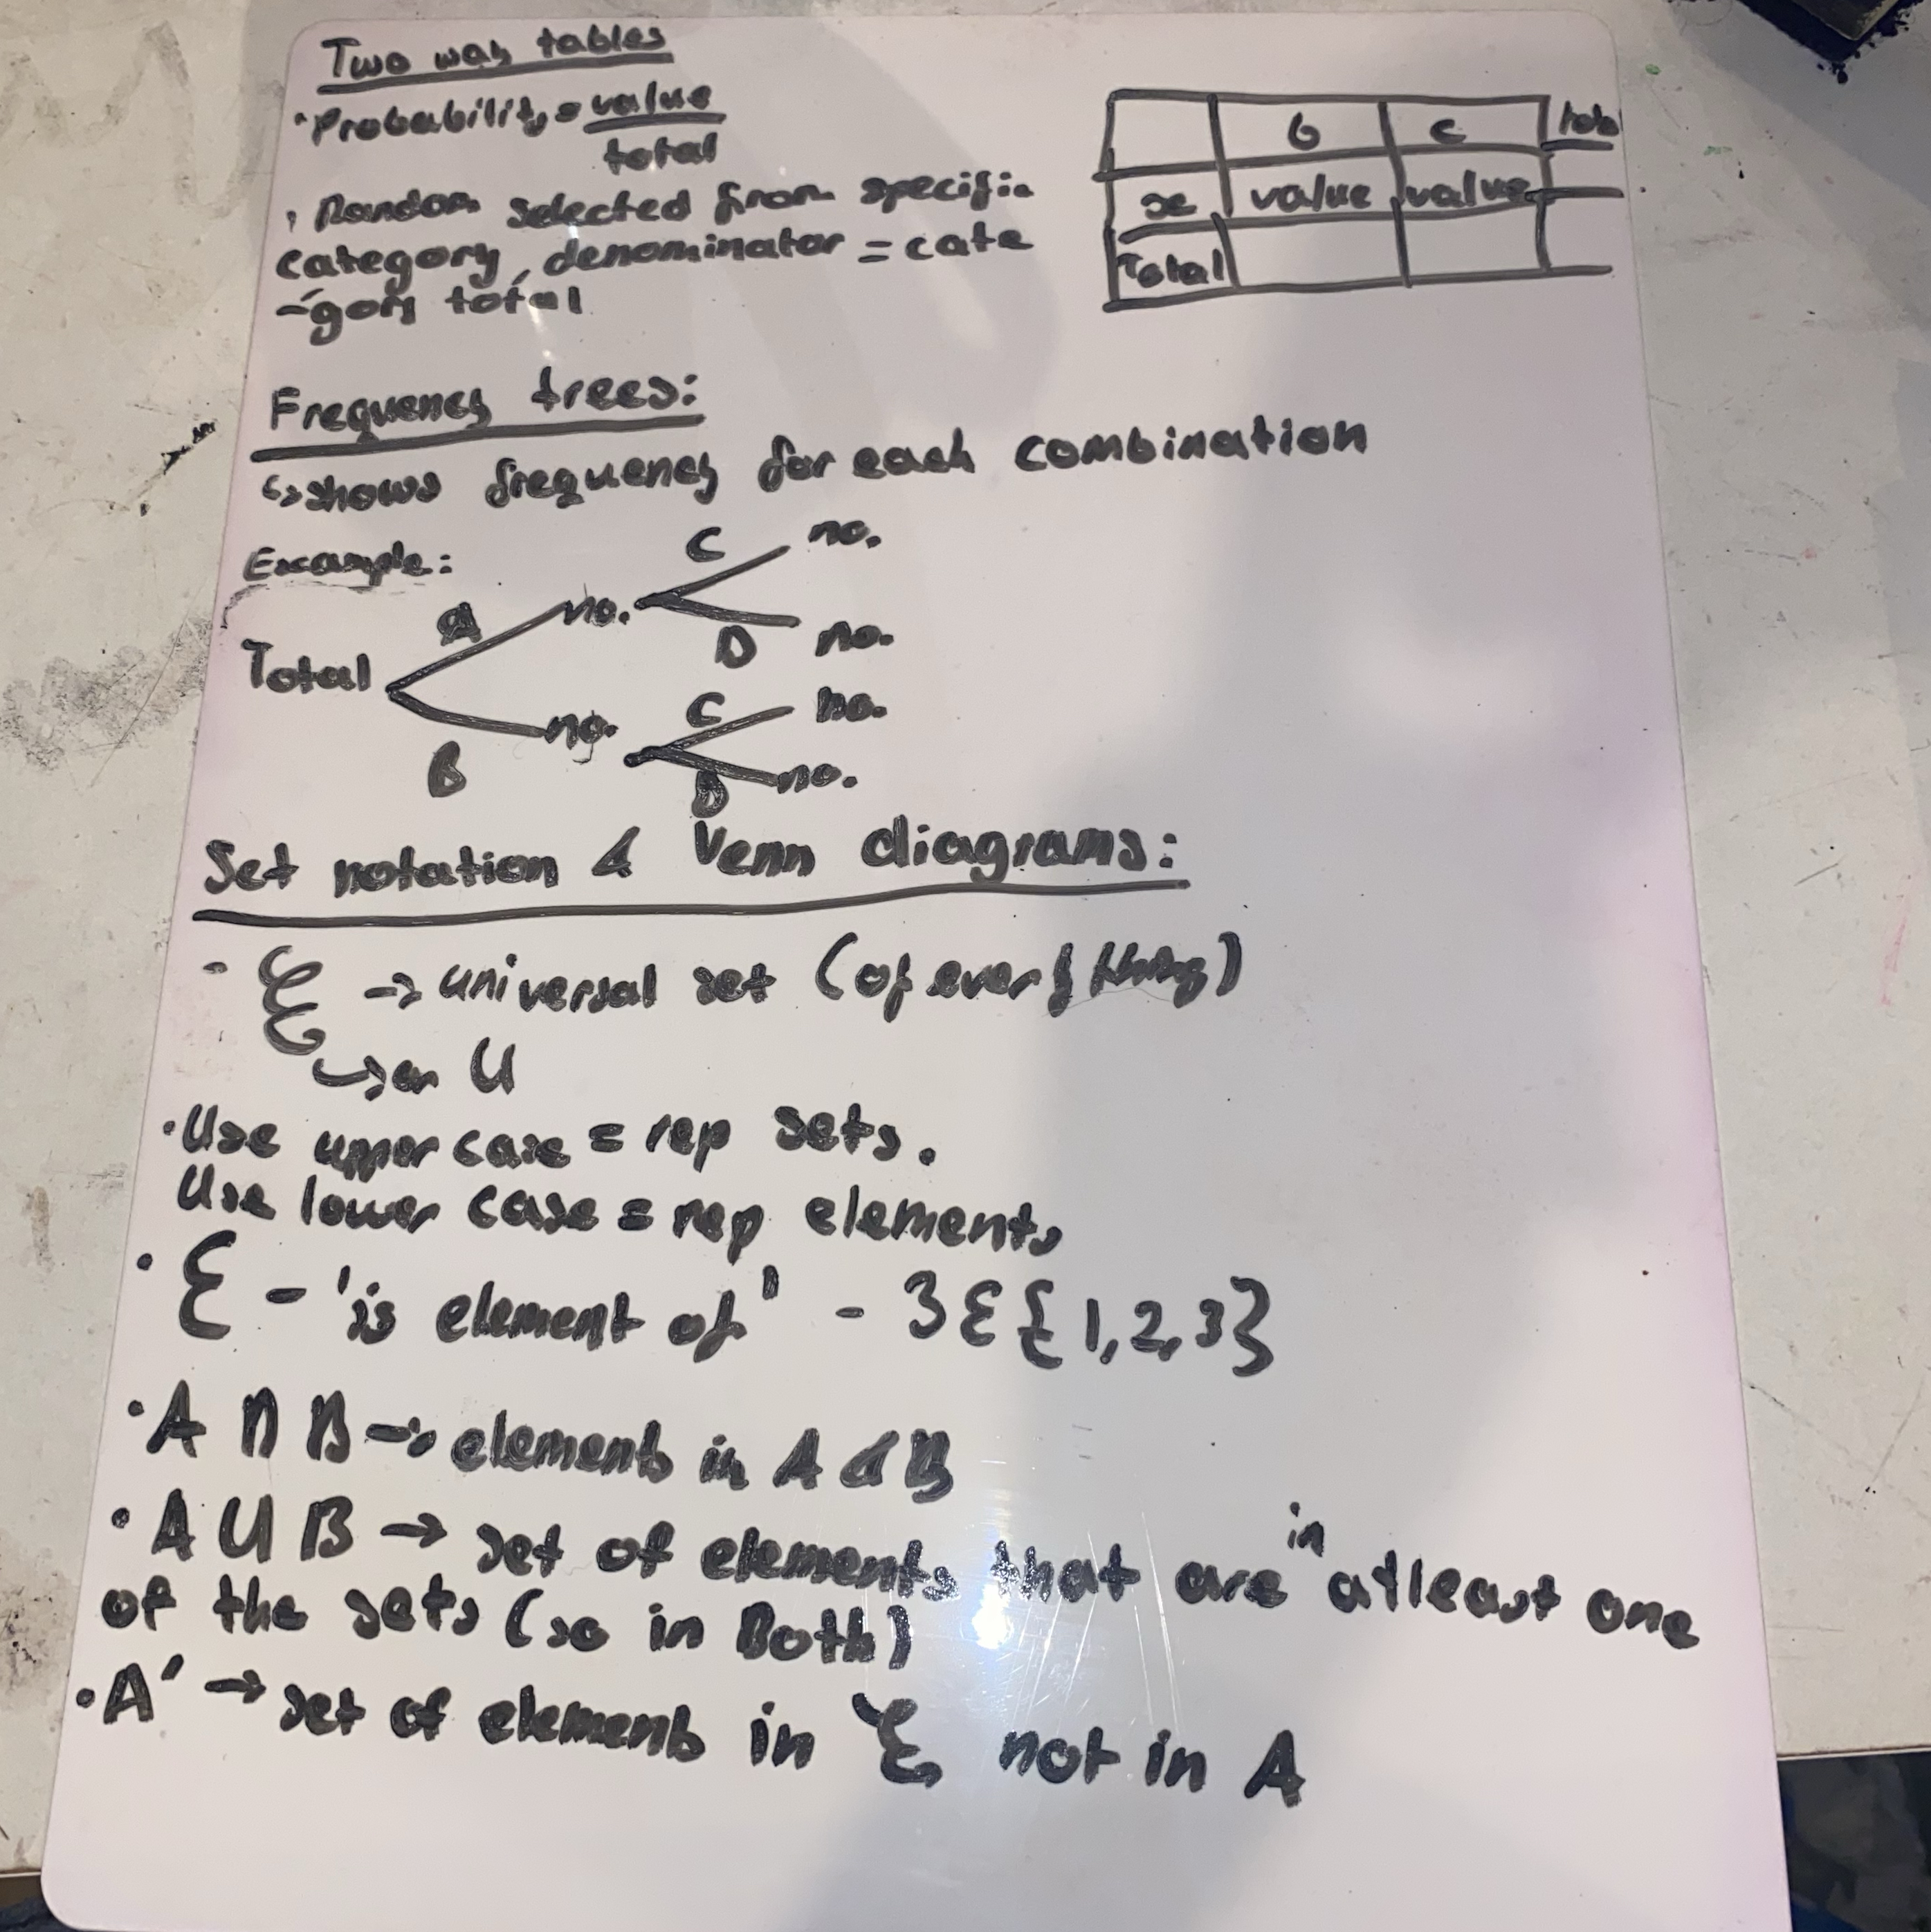 Two way tables
• Probability = value
total
b c
x value value
Total
• Random selected from specific
category, denominator = cate
-gory total
Frequency trees:
↳ shows frequency for each combination
Example:
Total
A no. C no.
D no.
B no. C no.
D no.
Set notation & Venn diagrams:
- ξ → universal set (of everything)
↳ or U
• Use upper case = rep sets.
Use lower case = rep elements
• Ɛ - 'is element of' - 3 Ɛ {1,2,3}
• A ∩ B → elements in A & B
• A U B → set of elements that are in atleast one
of the sets (so in Both)
• A' → set of elements in ξ not in A